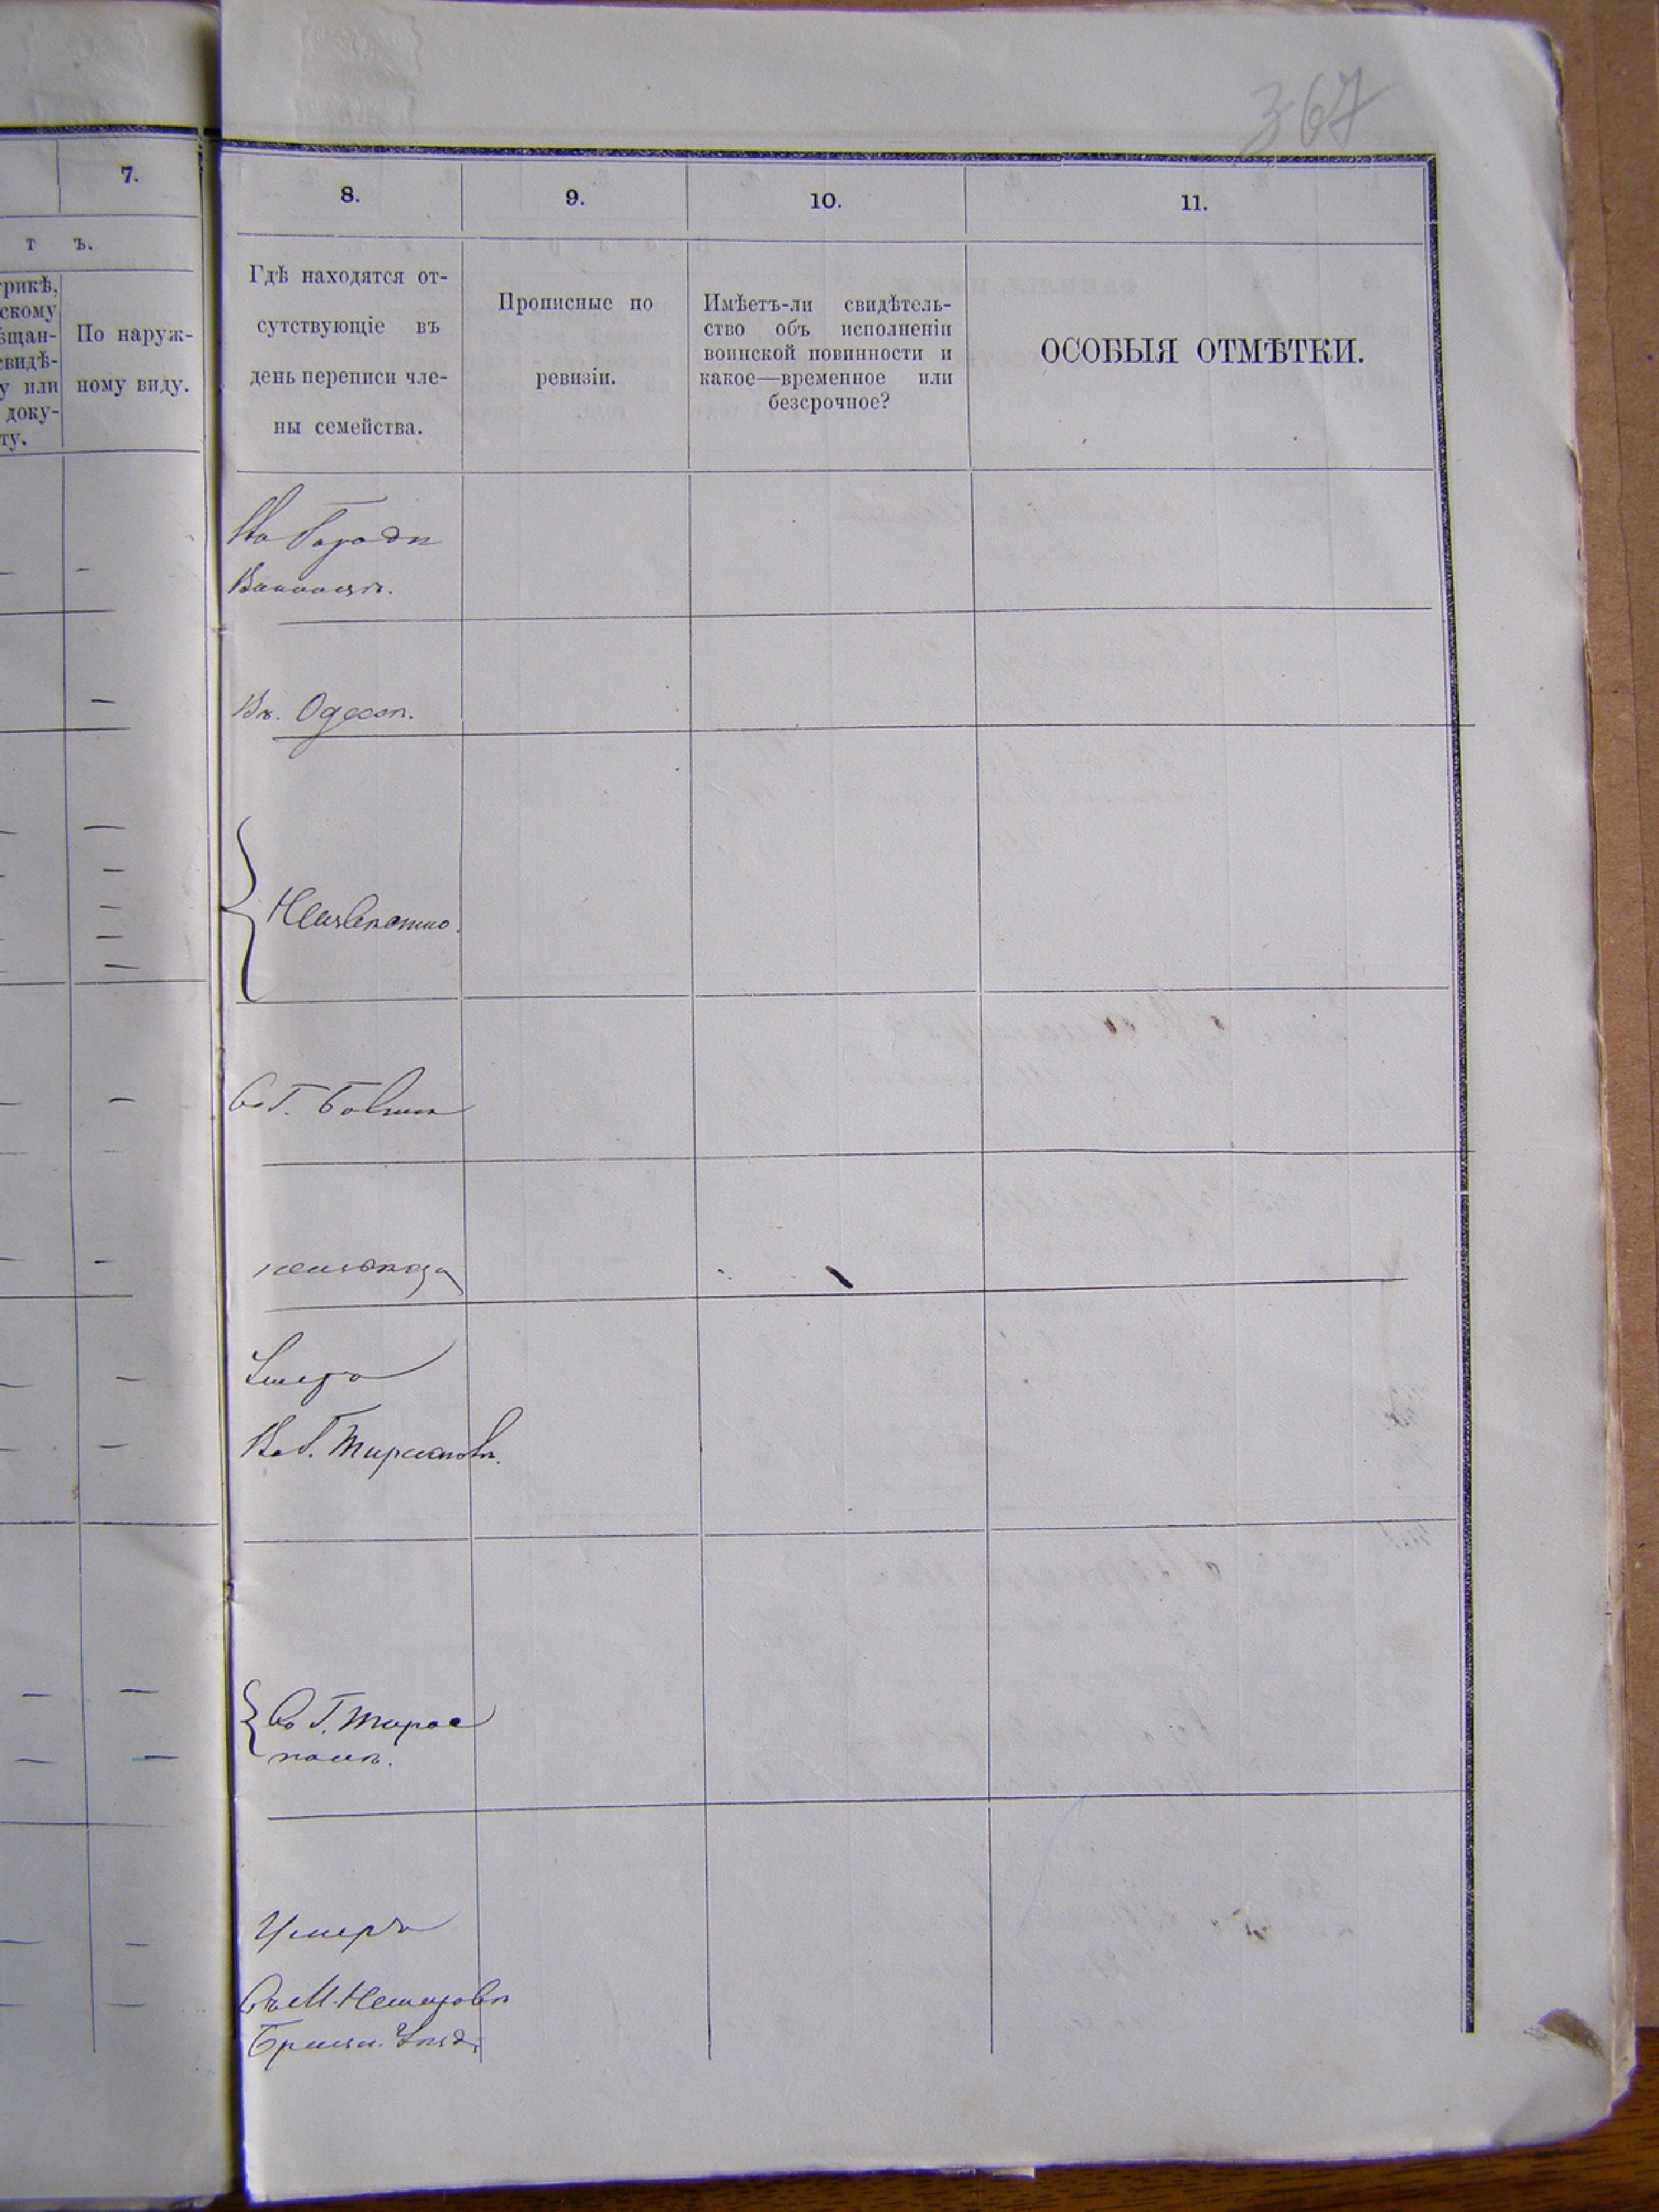 367
7.
т ъ.
трикѣ,
скому
ѣщан-
свидѣ-
у или
доку-
ту.
По наруж-
ному виду.
8.
9.
10.
11.
Гдѣ находятся от-
сутствующіе въ
день переписи чле-
ны семейства.
Прописные по
ревизіи.
Имѣетъ-ли свидѣтель-
ство объ исполненіи
воинской повинности и
какое—временное или
безсрочное?
ОСОБЫЯ ОТМѢТКИ.
Въ Городѣ
Въ. Одессѣ.
Неизвѣстно.
Въ Г.
Умеръ
Въ Г. Тирасполѣ.
Въ Г. Тирас
полѣ.
Умеръ
Въ М.